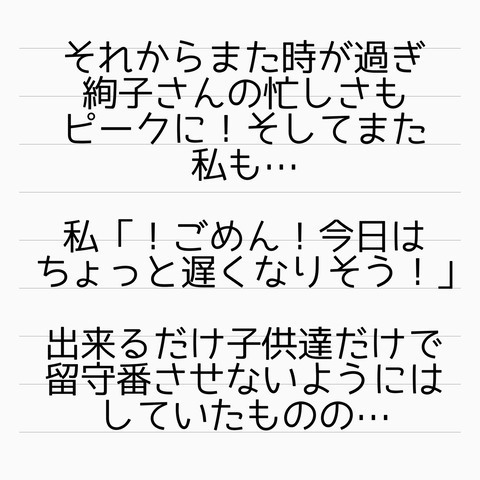 それからまた時が過ぎ
絢子さんの忙しさも
ピークに！そしてまた
私も…
私「！ごめん！今日は
ちょっと遅くなりそう！」
出来るだけ子供達だけで
留守番させないようには
していたものの…